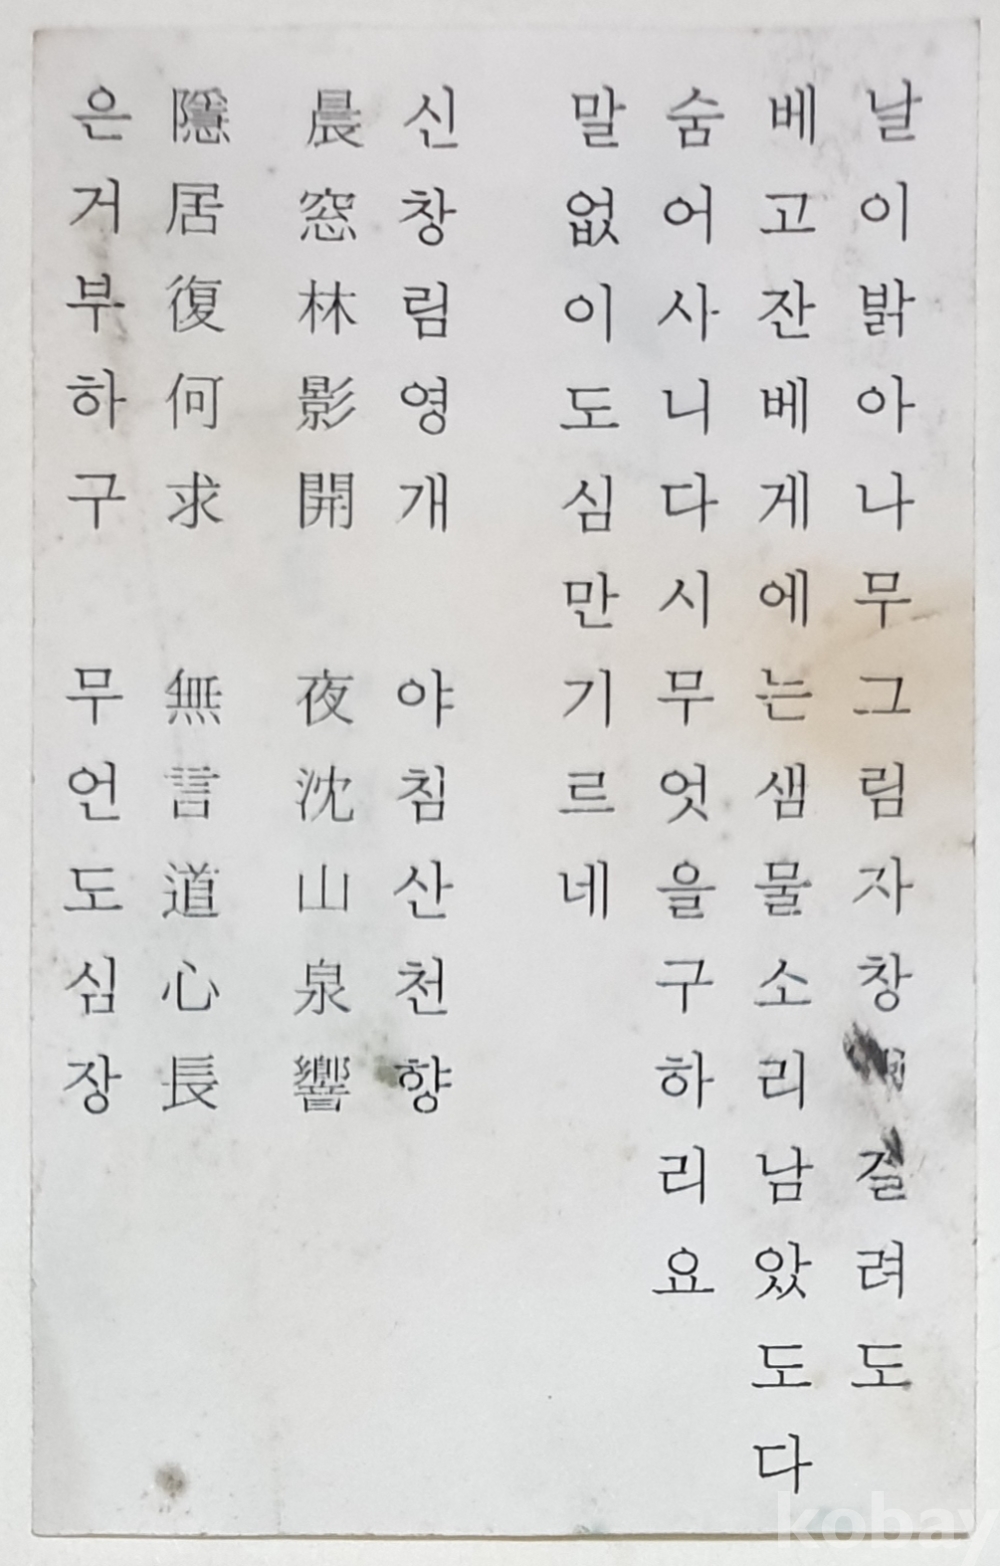 날이밝아나무그림자창 걸려도
베고잔베게에는샘물소리남았도다
숨어사니다시무엇을구하리요
말없이도심만기르네
신창림영개 야침산천향
晨窓林影開 夜沈山泉響
隱居復何求 無言道心長
은거부하구 무언도심장
kobay